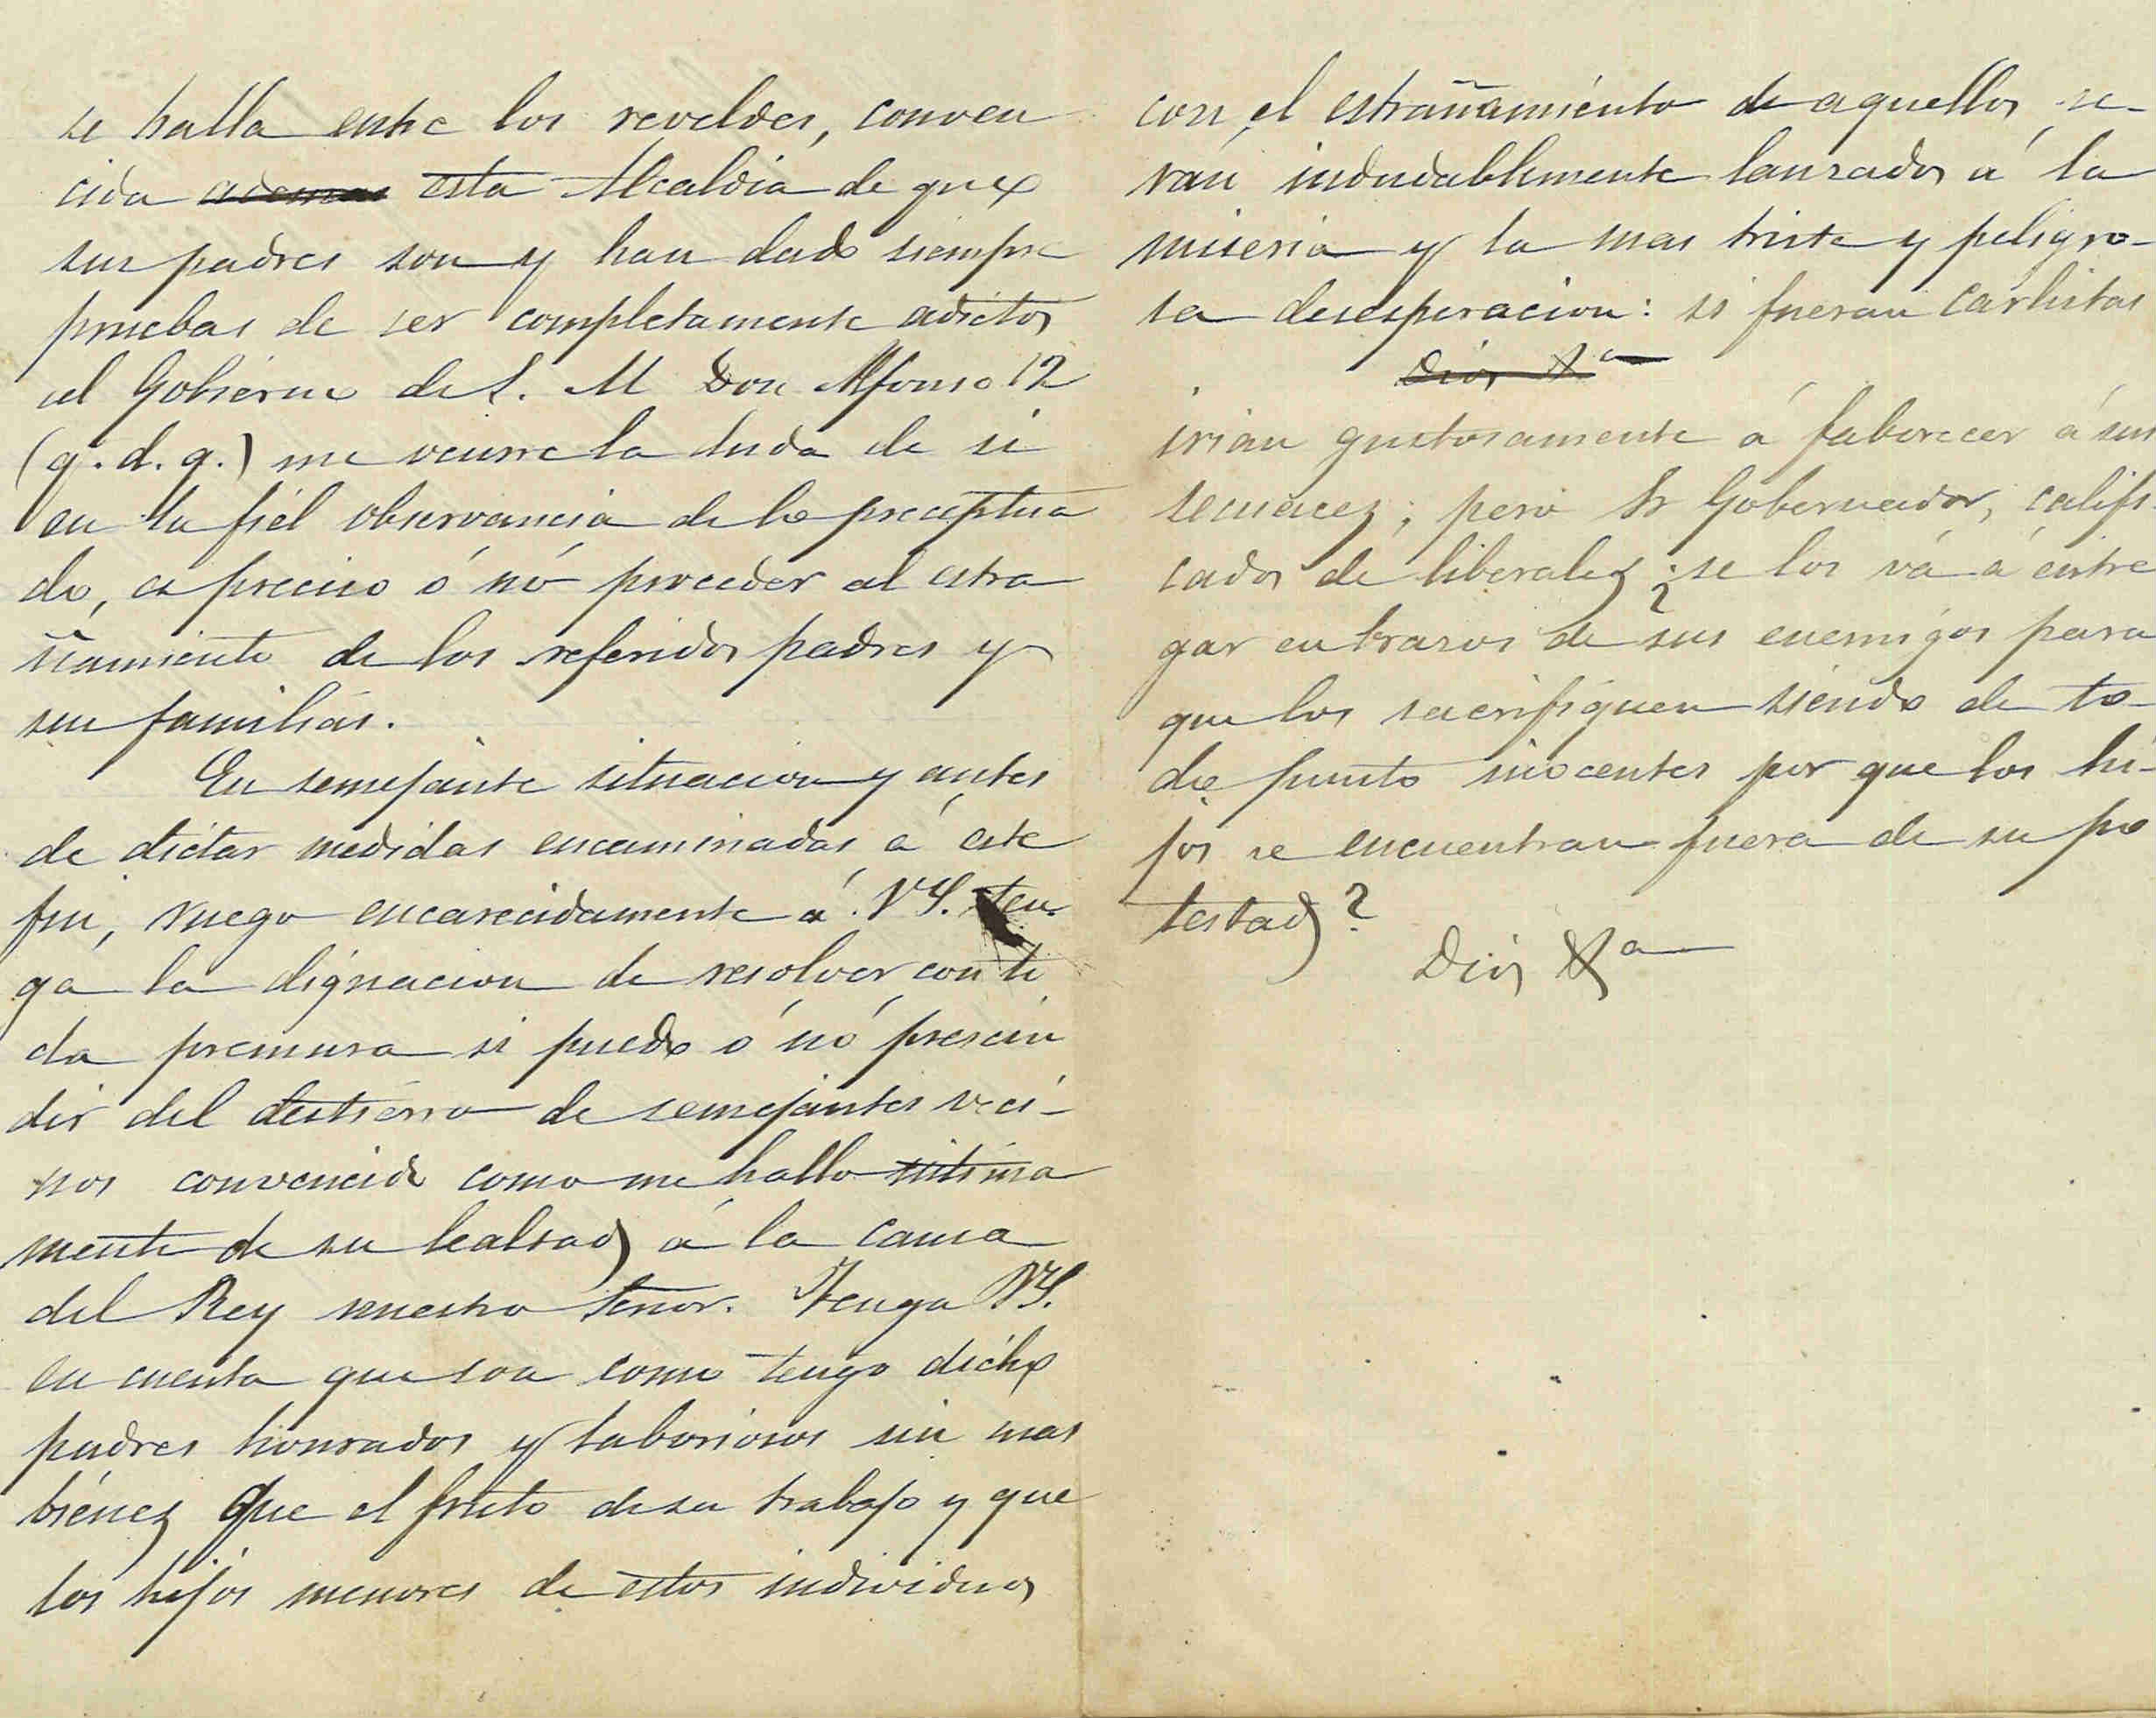 se halla entre los reveldes, conven
cida ademas esta Alcaldia de que
sus padres son y han dado siempre
pruebas de ser completamente adictos
al Gobierno de S. M Don Alfonso 12
(q. d. g.) me ocurre la duda de si
en la fiel observancia de lo preceptua
do, es preciso ó nó proceder al estra
ñamiento de los referidos padres y
sus familias.
En semejante situacion y antes
de dictar medidas encaminadas á este
fin, ruego encarecidamente á VS. ten
ga la dignacion de resolver con to
da premura si puedo ó nó prescin
dir del destierro de semejantes veci-
nos convencido como me hallo intima
mente de su lealtad á la causa
del Rey nuestro Señor. Tenga VS.
en cuenta que son como tengo dicho
padres honrados y laboriosos sin mas
bienes que el fruto de su trabajo y que
los hijos menores de estos individuos
con el estrañamiento de aquellos se-
rán indudablemente lanzados á la
miseria y la mas triste y peligro-
sa desesperacion: si fueran carlistas
Dios &a
irian gustosamente á faborecer á sus
secuaces; pero Sr Gobernador, califi-
cados de liberales ¿se los vá á entre
gar en brazos de sus enemigos para
que los sacrifiquen siendo de to-
do punto inocentes por que los hi-
jos se encuentran fuera de su po
testad?
Dios &a